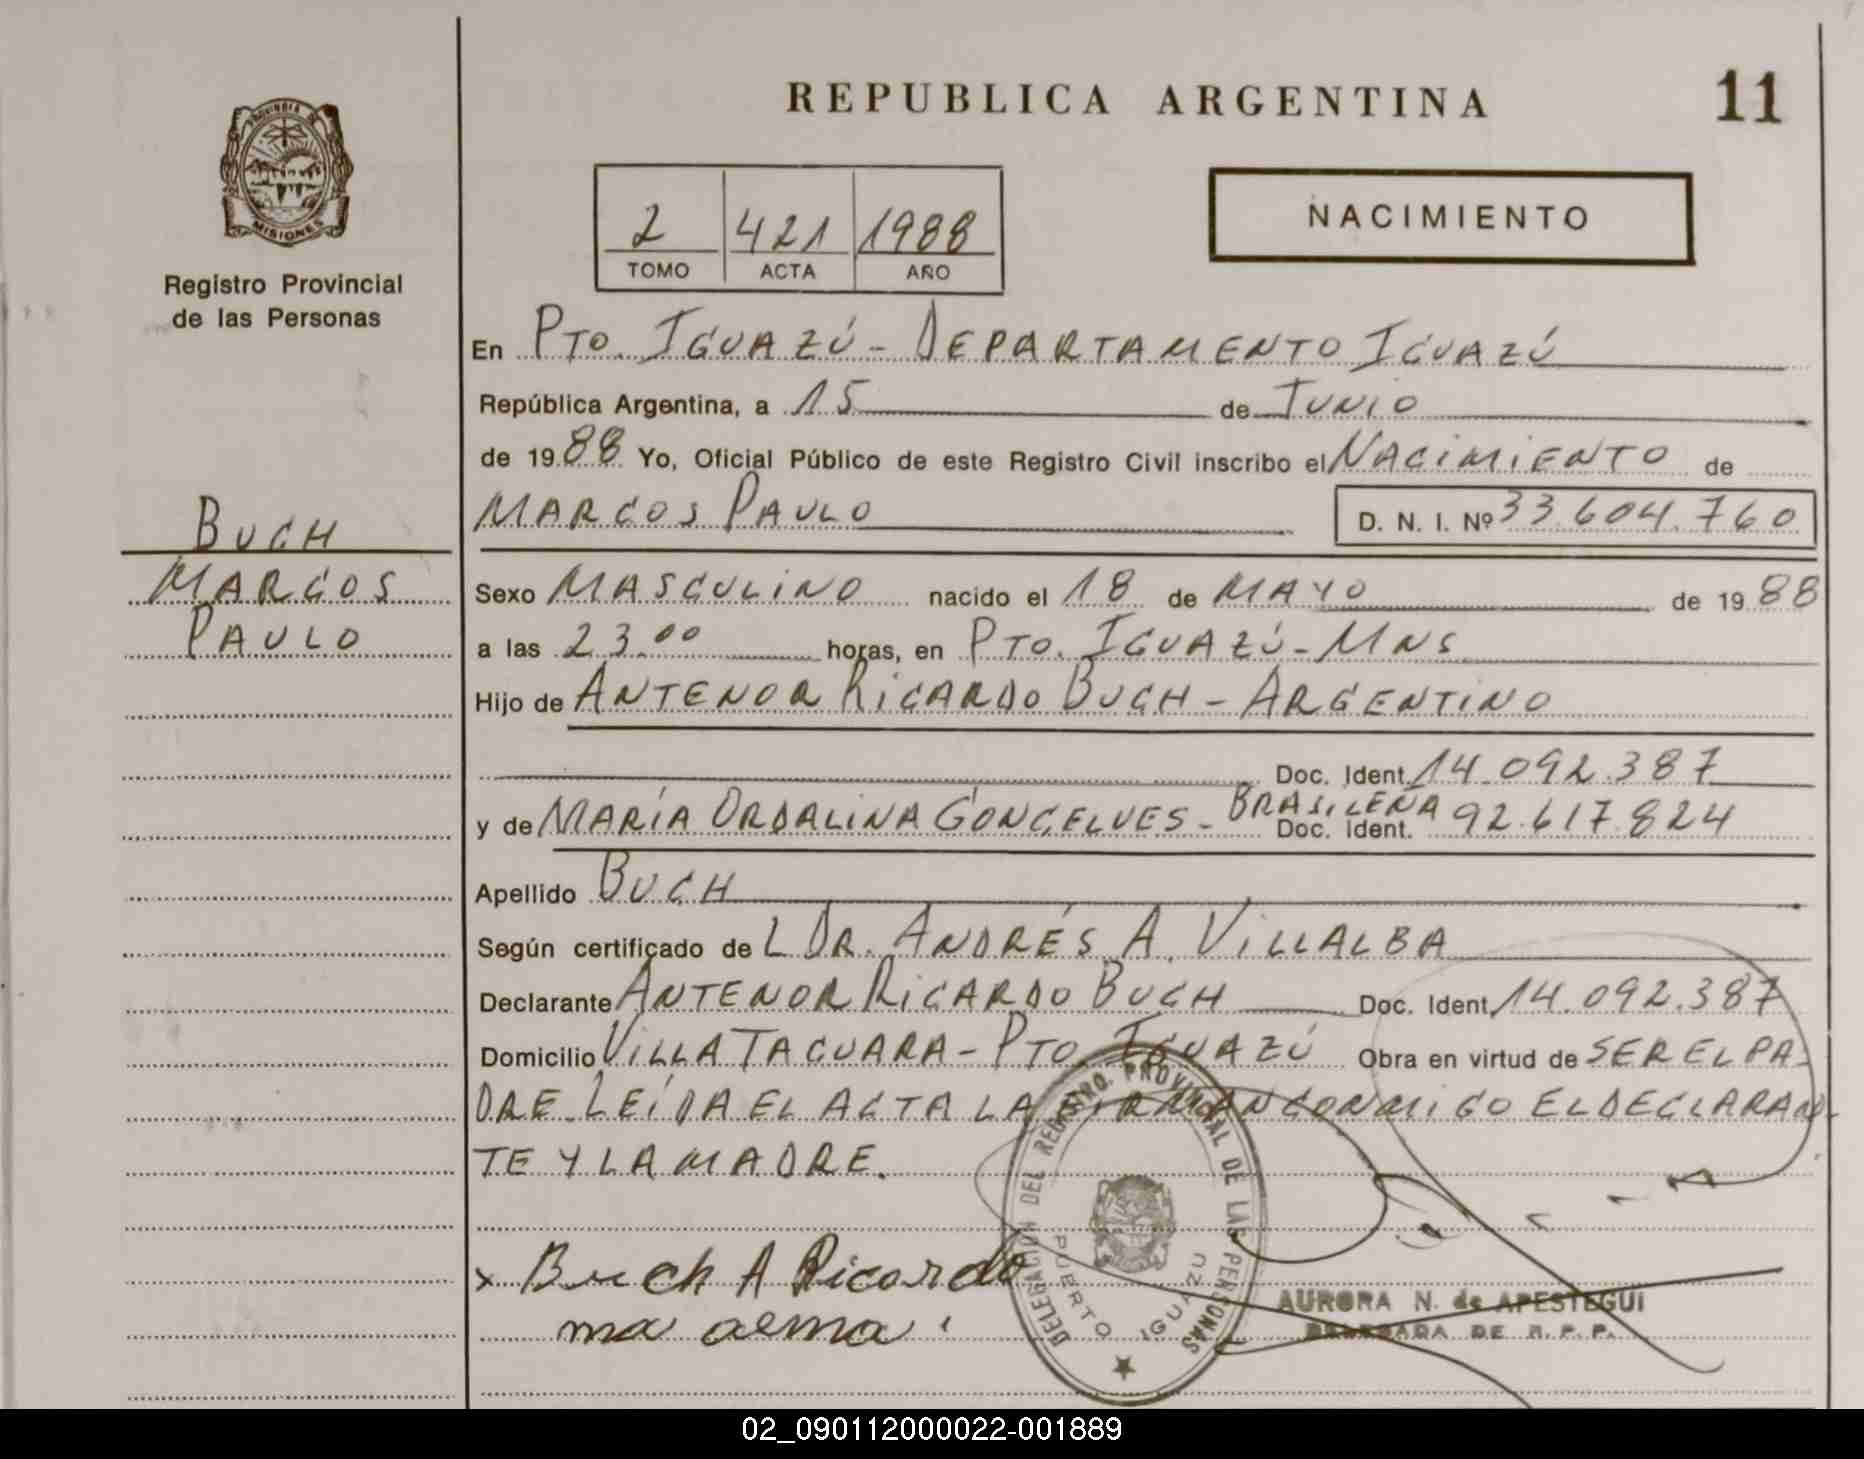 REPUBLICA ARGENTINA
11
PROVINCIA DE
MISIONES
Registro Provincial
de las Personas
2 421 1988
TOMO ACTA AÑO
NACIMIENTO
En PTO. IGUAZÚ - DEPARTAMENTO IGUAZÚ
República Argentina, a 15 de JUNIO
de 1988 Yo, Oficial Público de este Registro Civil inscribo el NACIMIENTO de
MARCOS PAULO D. N. I. Nº 33.604.760
BUCH
MARCOS
PAULO
Sexo MASCULINO nacido el 18 de MAYO de 1988
a las 23.00 horas, en PTO. IGUAZÚ - MNS
Hijo de ANTENOR RICARDO BUCH - ARGENTINO
Doc. Ident. 14.092.387
y de MARÍA ORDALINA GONÇELVES - BRASILEÑA Doc. Ident. 92.617.824
Apellido BUCH
Según certificado de L DR. ANDRÉS A. VILLALBA
Declarante ANTENOR RICARDO BUCH Doc. Ident. 14.092.387
Domicilio VILLA TACUARA - PTO. IGUAZÚ Obra en virtud de SER EL PA-
DRE. LEÍDA EL ACTA LA FIRMAN CONMIGO EL DECLARAN-
TE Y LA MADRE.
x Buch A Ricardo
DELEGACION DEL REGISTRO PROVINCIAL DE LAS PERSONAS
PUERTO IGUAZU
AURORA N. de APESTEGUI
DELEGADA DE R. P. P.
02_090112000022-001889